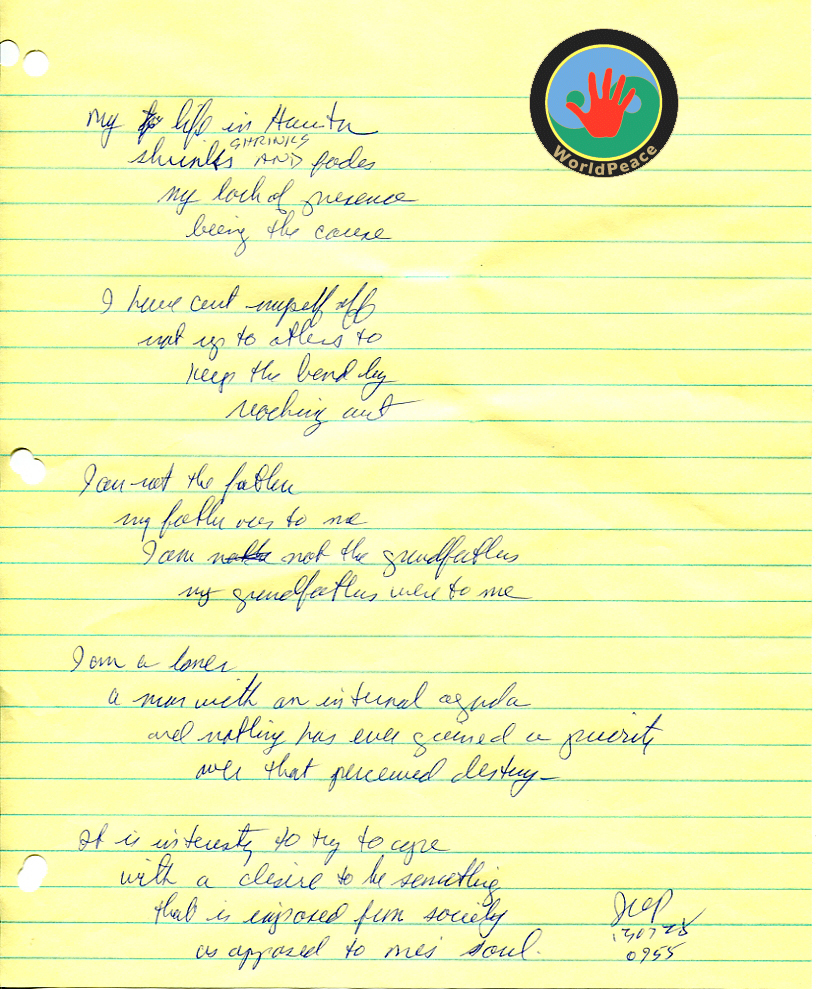 WorldPeace
my life in Houston
SHRINKS
shrinks AND fades
my lack of presence
being the cause
I have cut myself off
not up to others to
keep the bond by
reaching out
I am not the father
my father was to me
I am not the grandfathers
my grandfathers were to me
I am a loner
a man with an internal agenda
and nothing has ever gained a priority
over that perceived destiny
It is interesting to try to cope
with a desire to be something
that is imposed from society
as opposed to one's soul.
JWP
0955